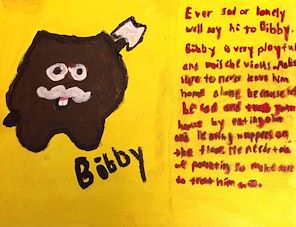 Ever sad or lonely
well say hi to Bibby.
Bibby a very playful
and
sure to never leave him
home alone because he'll
be sad and your
house by eating
and leaving wrappers on
the floor. He needs
of parenting so make sure
to treat him
Bibby